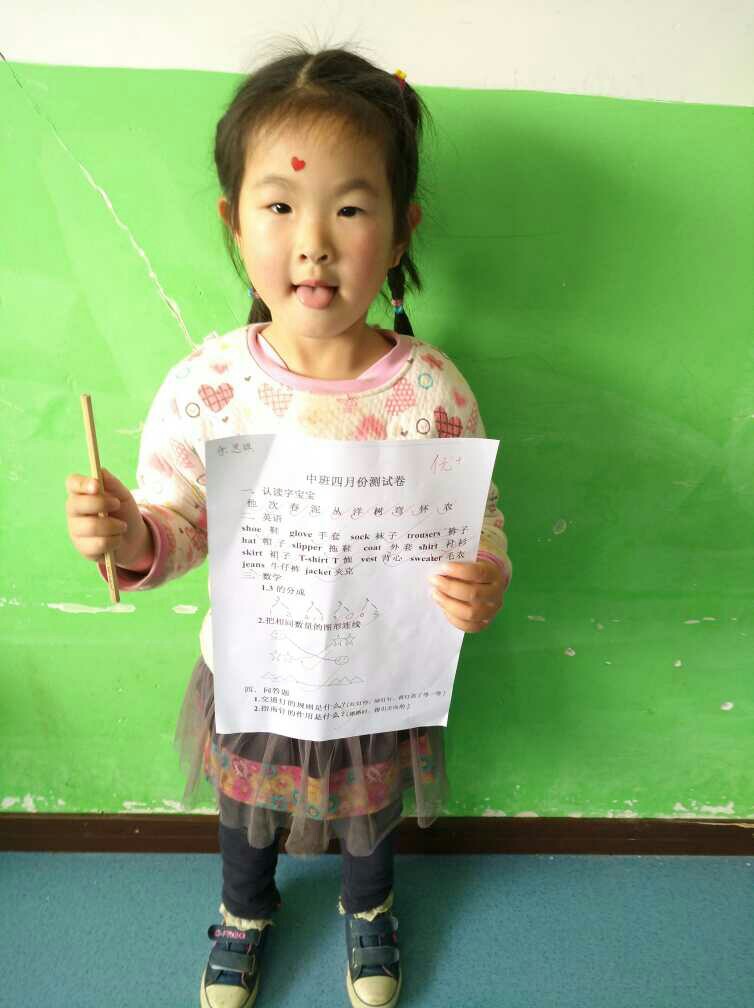 优+
中班四月份测试卷
一、认读字宝宝
他 次 春 泥 丛 洋 树 弯 怀 衣
二、英语
shoe 鞋 glove 手套 sock 袜子 trousers 裤子
hat 帽子 slipper 拖鞋 coat 外套 shirt 衬衫
skirt 裙子 T-shirt T 恤 vest 背心 sweater 毛衣
jeans 牛仔裤 jacket 夹克
三、数学
1.3 的分成
2.把相同数量的图形连线
四、问答题
1.交通灯的规则是什么?(红灯停,绿灯行,黄灯亮了等一等)
2.指南针的作用是什么?